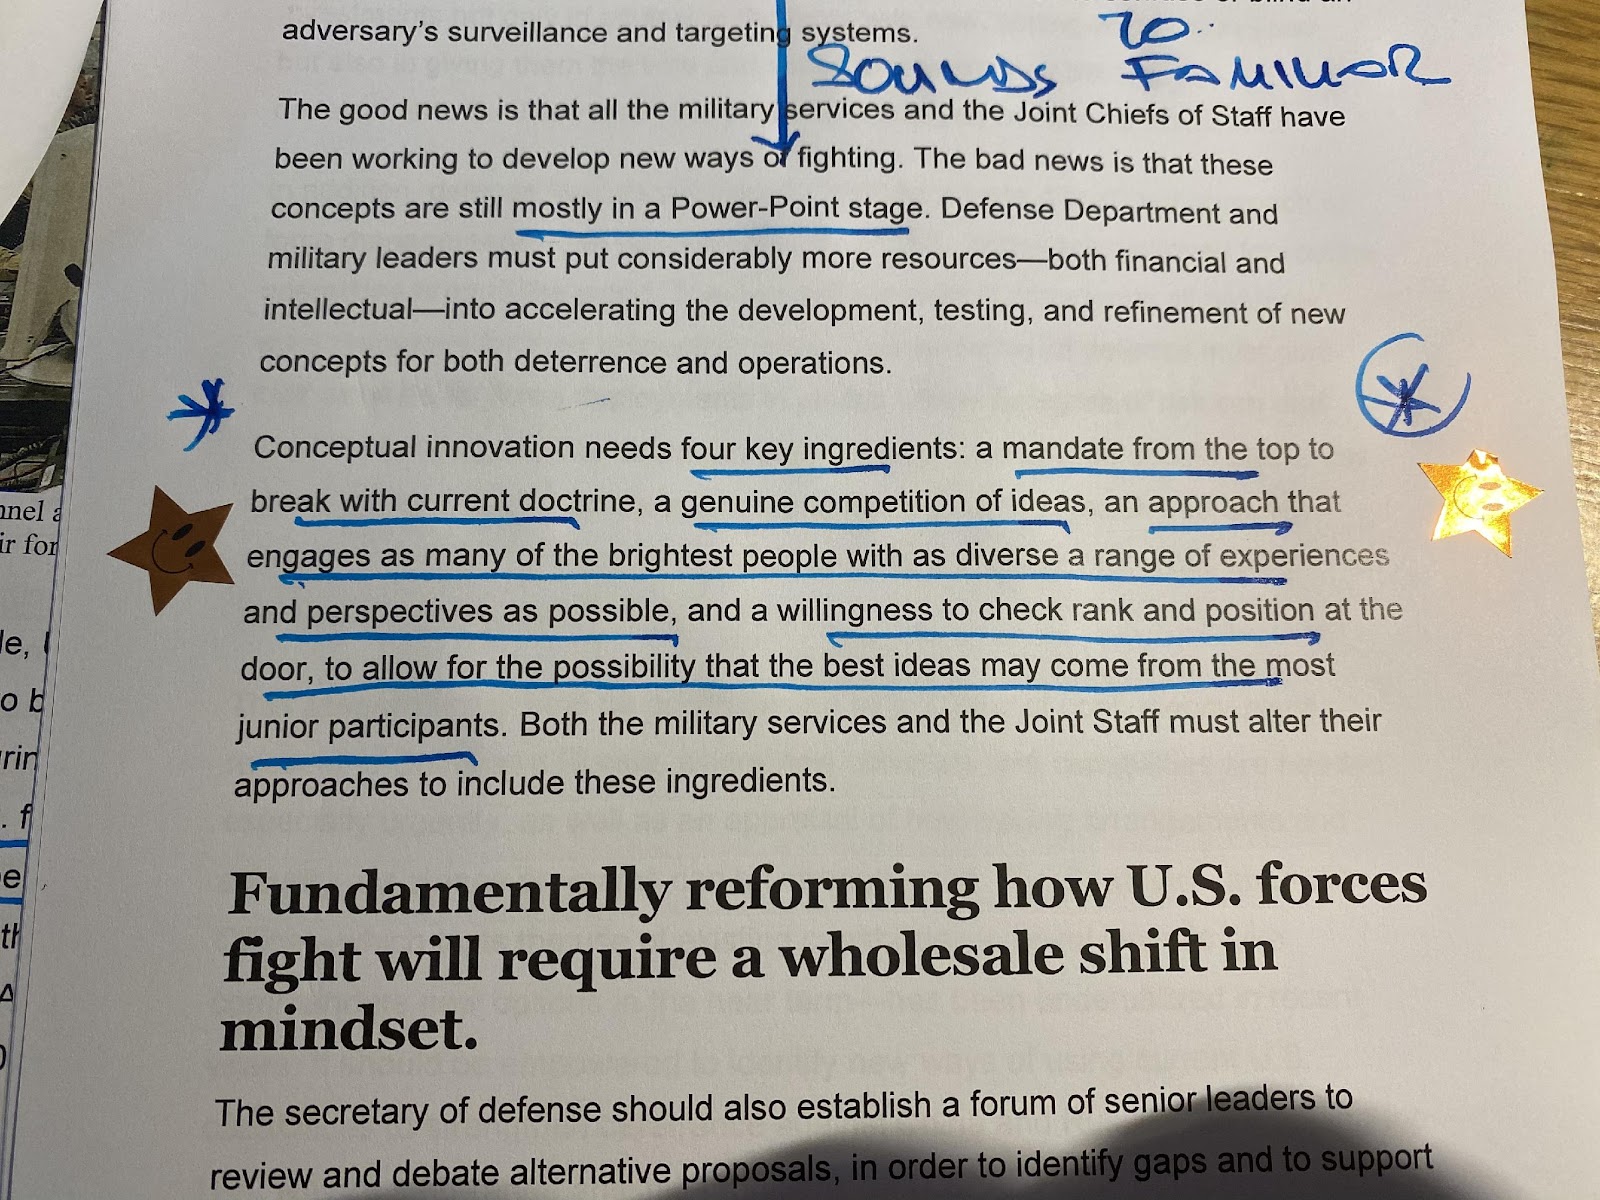 adversary's surveillance and targeting systems.
TO
SOUNDS FAMILIAR
The good news is that all the military services and the Joint Chiefs of Staff have
been working to develop new ways of fighting. The bad news is that these
concepts are still mostly in a Power-Point stage. Defense Department and
military leaders must put considerably more resources—both financial and
intellectual—into accelerating the development, testing, and refinement of new
concepts for both deterrence and operations.
Conceptual innovation needs four key ingredients: a mandate from the top to
break with current doctrine, a genuine competition of ideas, an approach that
engages as many of the brightest people with as diverse a range of experiences
and perspectives as possible, and a willingness to check rank and position at the
door, to allow for the possibility that the best ideas may come from the most
junior participants. Both the military services and the Joint Staff must alter their
approaches to include these ingredients.
Fundamentally reforming how U.S. forces
fight will require a wholesale shift in
mindset.
The secretary of defense should also establish a forum of senior leaders to
review and debate alternative proposals, in order to identify gaps and to support